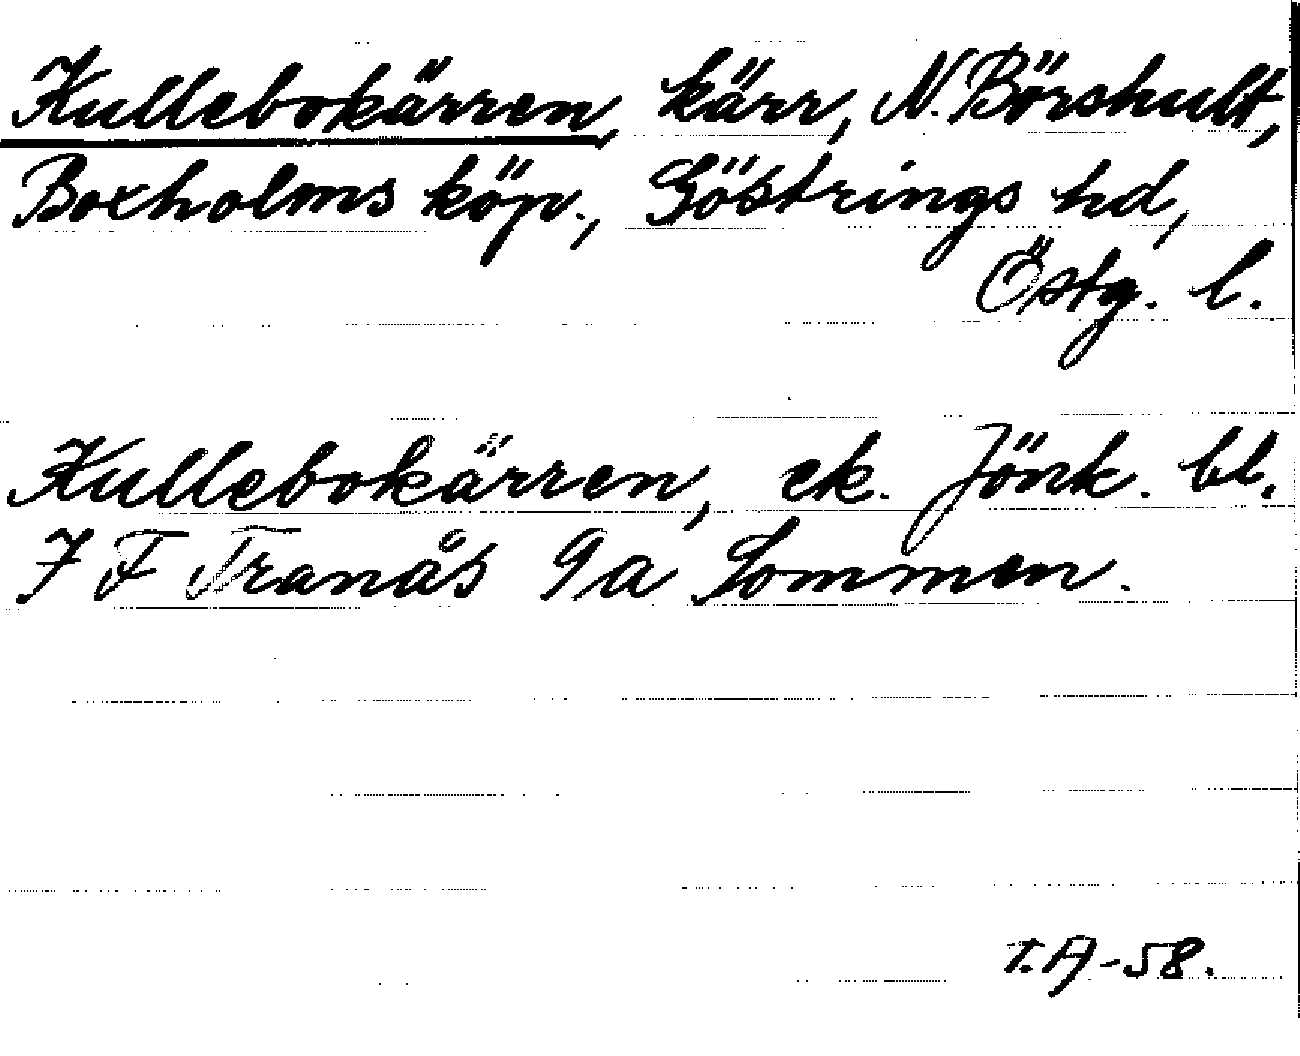 Kullebokärren, kärr, N. Börshult,
Boxholms köp., Göstrings hd,
Östg. l.
Kullebokärren, ek. Jönk. bl.
7 F Tranås 9a Sommen.
T.A-58.